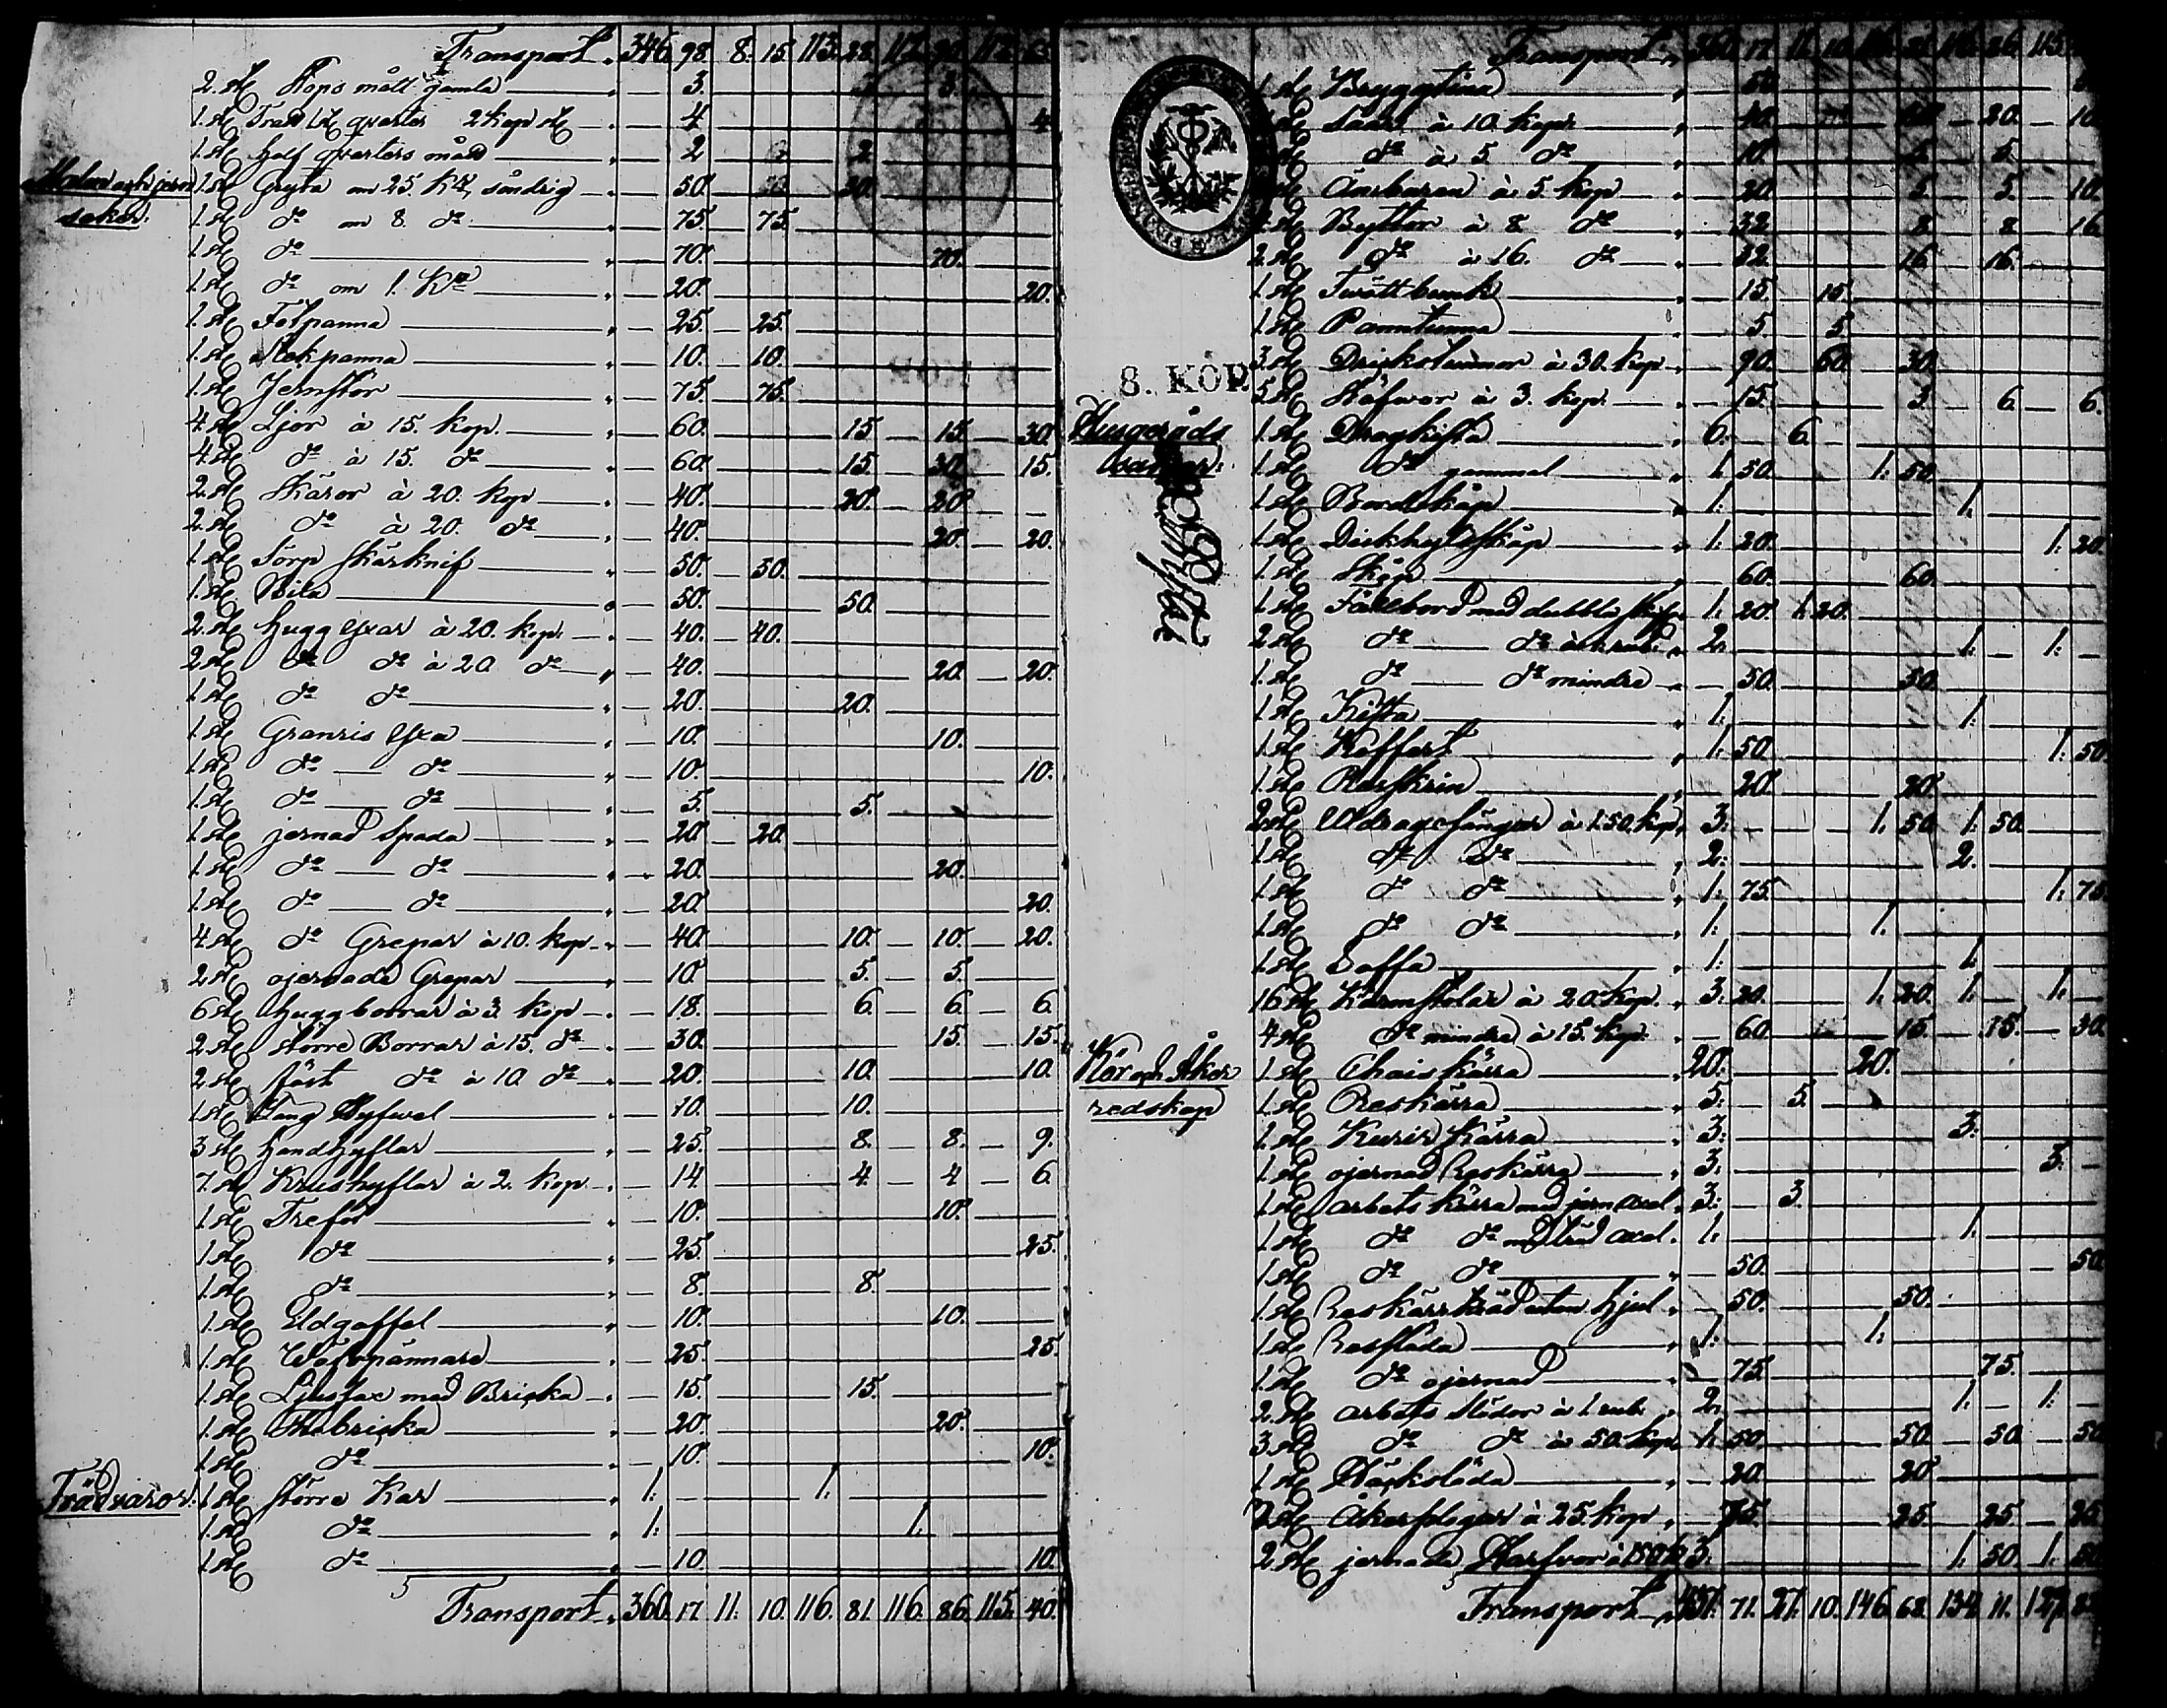 Transport 346. 98. 8. 15. 113. 28. 117. 90. 112. 63.
2. st Stops mått gamla — 3. 3.
1. st Träd ½ st qvarter 2 kop st — 4 4.
1. st half qvarters mått — 2 2
1. st Gryta om 25. K:r, söndrig — 50. 20. 30.
saker.
1. st do om 8. do — 75. 75.
1. st do — 70. 70.
1. st do om 1. K:a — 20. 20.
1. st Fotpanna — 25. 25.
1. st Stekpanna — 10. 10.
1. st Jernstör — 75. 75.
4. st Ljor à 15. kop. — 60. 15. 15. 30.
4. st do à 15. do — 60. 15. 30. 15.
2. st Skäror à 20. kop — 40. 20. 20.
2. st do à 20. do — 40. 20. 20.
1. st Sörp skärknif — 50. 50.
1. st Bila — 50. 50.
2. st hugg yxar à 20. kop. — 40. 40.
2. st do do à 20 do — 40. 20. 20.
1. st do do — 20. 20.
1. st Granris yxa — 10. 10.
1. st do — do — 10. 10.
1. st do — do — 5. 5.
1. st jernad Spada — 20. 20.
1. st do — do — 20. 20.
1. st do — do — 20. 20.
4. st do Grepar à 10. kop — 40. 10. 10. 20.
2. st ojernade Grepar — 10. 5. 5.
6 st huggborrar à 3. kop — 18. 6. 6. 6.
2. st större Borrar à 15. do — 30. 15. 15.
2. st fäst do à 10. do — 20. 10. 10.
1. st Lang Hyfvel — 10. 10.
3. st handhyflar — 25. 8. 8. 9.
7. st Krushyflar à 2. kop — 14. 4. 4. 6.
1. st Trefot — 10. 10.
1. st do — 25. 25.
1. st do — 8. 8.
1. st Eldgaffel — 10. 10.
1. st Wåfspännare — 25. 25.
1. st Ljussax med Bricka — 15. 15.
1. st Thébricka — 20. 20.
1. st do — 10. 10.
Trädvaror. 1. st större Kar — 1. 1.
1. st do — 1. 1.
1. st do — 10. 10.
Transport 360. 17. 11. 10. 116. 81. 116. 86. 115. 40.
Transport 360. 17. 11. 10. 116. 81. 116. 86. 115.
1. st Bryggtina — 50.
st Såar à 10. kop — 40. 20. 10
st do à 5 do — 10. 5. 5.
st Ämbaren à 5. kop — 20. 5. 5. 10.
st Byttor à 8 do — 32. 8. 8. 16
2. st do à 16. do — 32. 16. 16.
1. st Twättbunk — 15. 15.
1. st Panntunna — 5. 5.
8. KOP.
3. st Drickstunnor à 30. kop — 90. 60. 30.
5. st Stäfvor à 3. kop. — 15. 3. 6. 6.
Husgeråds
1. st Dragkista — 6. 6.
1. st do gammal — 1. 50. 1. 50.
1. st Bordskåp — 1. 1.
1. st Diskhyllskåp — 1. 20. 1. 20.
1. st Skåp — 60. 60.
1. st Fällbord med dubbla — 1. 20. 1. 20.
2. st do — do à 1. rub. 2. 1. 1.
1. st do — do mindre — 50. 50.
1. st Kista — 1. 1.
1. st Koffert — 1. 50. 1. 50.
1. st Resskrin — 20. 20.
2. st Utdragssängar à 1.50. kop. 3. 1. 50. 1. 50.
1. st do do — 2. 2.
1. st do do — 1. 75. 1. 75.
1. st do do — 1. 1.
1. st Soffa — 1. 1.
16 st Karmstolar à 20. kop. 3. 20. 1. 20. 1. 1.
4 st do mindre à 15. kop. 60. 15. 15. 30.
Kör och Åker 1. st Chaiskärra — 20. 20.
redskap 1. st Reskärra — 5. 5.
1. st Kurir kärra — 3. 3.
1. st ojernad Reskärra — 3. 3.
1. st arbets kärra med jern axel. 3. 3.
1. st do do med träd axel. 1. 1.
1. st do do — 50. 50
1. st Reskärrträd utan hjul — 50. 50.
1. st Ressläda — 1. 1.
1. st do ojernad — 75. 75.
2. st arbets slädor à 1. rub. 2. 1. 1.
3. st do do à 50. kop. 1. 50. 50. 50. 50
1. st Stäckslöda — 20. 20.
3. st åkerplogar à 25. kop. 75. 25. 25. 25.
2. st jernade Harfvor à 150 k 3. 1. 50. 1. 50
Transport 71. 27. 10. 146. 68. 134. 11. 127.